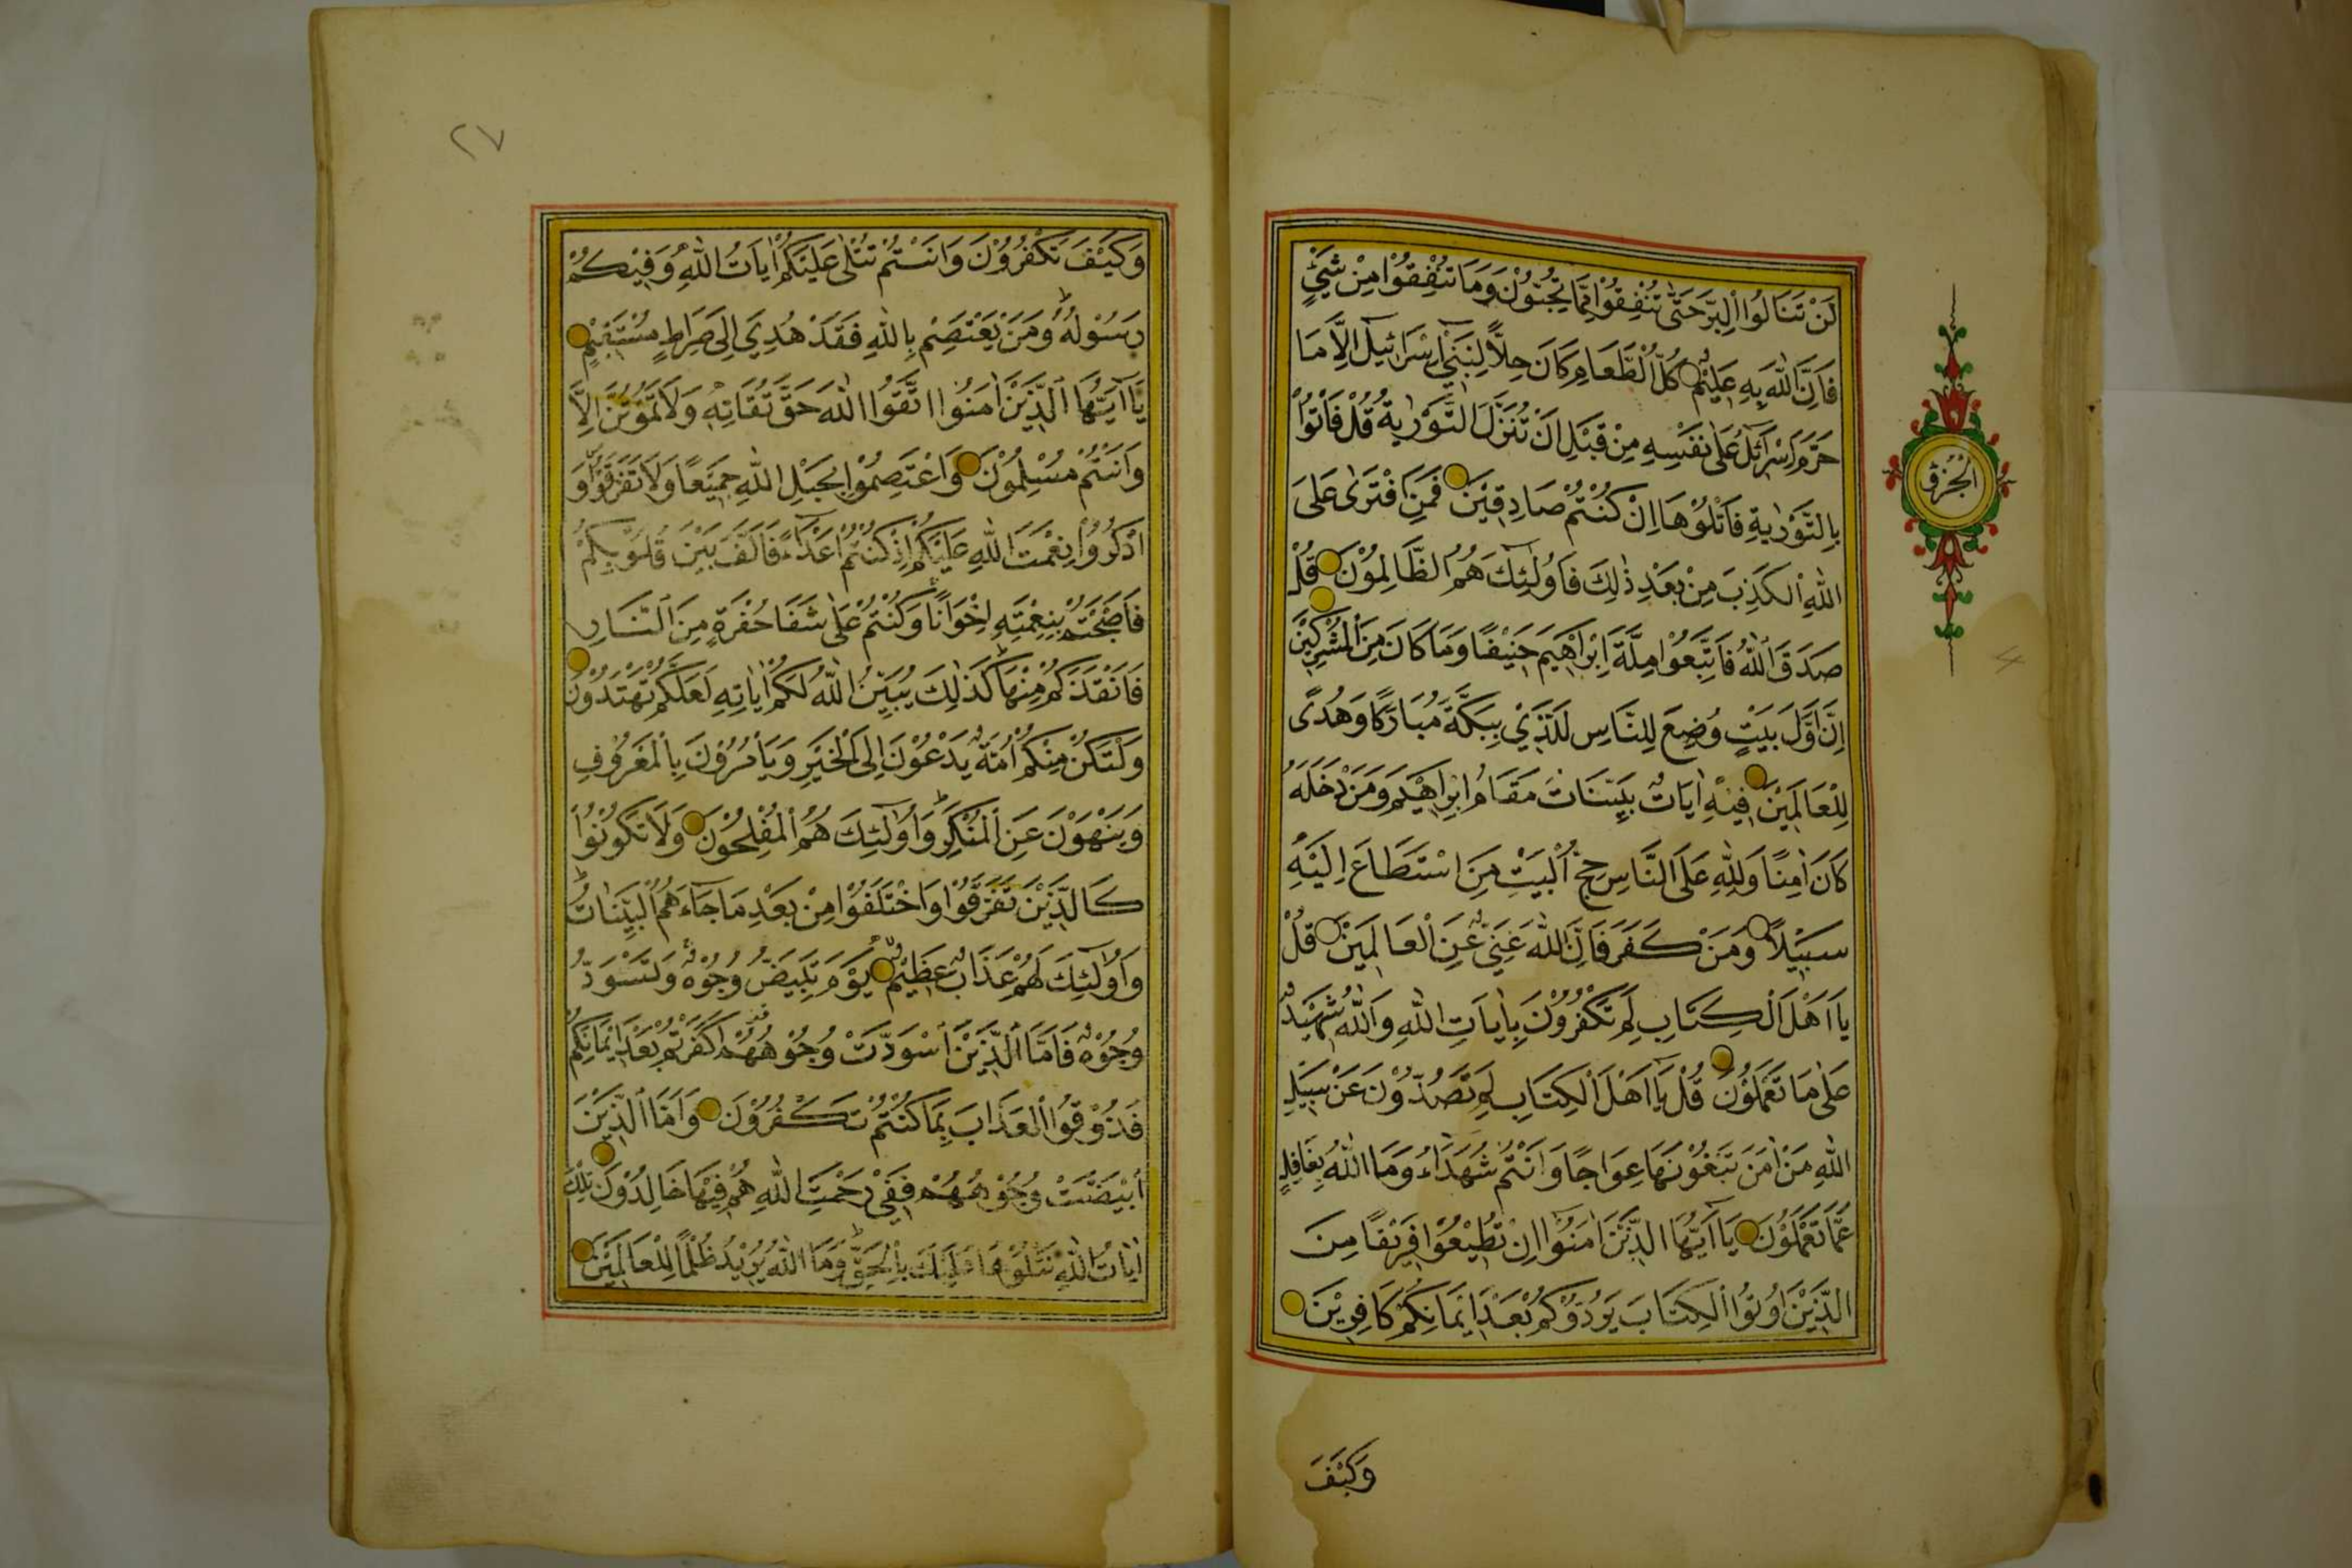 لَنْ تَنَالُوا الْبِرَّ حَتّٰى تُنْفِقُوْا مِمَّا تُحِبُّوْنَ وَمَا تُنْفِقُوْا مِنْ شَيْءٍ
فَاِنَّ اللّٰهَ بِهِ عَلِيْمٌ كُلُّ الطَّعَامِ كَانَ حِلًّا لِبَنِيْ اِسْرَائِيْلَ اِلَّا مَا
حَرَّمَ اِسْرَائِلُ عَلٰى نَفْسِهِ مِنْ قَبْلِ اَنْ تُنَزَّلَ التَّوْرٰيةُ قُلْ فَأْتُوْا
بِالتَّوْرٰيةِ فَاتْلُوْهَا اِنْ كُنْتُمْ صَادِقِيْنَ فَمَنِ افْتَرٰى عَلَى
اللّٰهِ الْكَذِبَ مِنْ بَعْدِ ذٰلِكَ فَاُولٰئِكَ هُمُ الظَّالِمُوْنَ قُلْ
صَدَقَ اللّٰهُ فَاتَّبِعُوْا مِلَّةَ اِبْرَاهِيْمَ حَنِيْفًا وَمَا كَانَ مِنَ الْمُشْرِكِيْنَ
اِنَّ اَوَّلَ بَيْتٍ وُضِعَ لِلنَّاسِ لَلَّذِيْ بِبَكَّةَ مُبَارَكًا وَهُدًى
لِلْعَالَمِيْنَ فِيْهِ اٰيَاتٌ بَيِّنَاتٌ مَقَامُ اِبْرَاهِيْمَ وَمَنْ دَخَلَهُ
كَانَ اٰمِنًا وَلِلّٰهِ عَلَى النَّاسِ حِجُّ الْبَيْتِ مَنِ اسْتَطَاعَ اِلَيْهِ
سَبِيْلًا وَمَنْ كَفَرَ فَاِنَّ اللّٰهَ غَنِيٌّ عَنِ الْعَالَمِيْنَ قُلْ
يَا اَهْلَ الْكِتَابِ لِمَ تَكْفُرُوْنَ بِاٰيَاتِ اللّٰهِ وَاللّٰهُ شَهِيْدٌ
عَلٰى مَا تَعْمَلُوْنَ قُلْ يَا اَهْلَ الْكِتَابِ لِمَ تَصُدُّوْنَ عَنْ سَبِيْلِ
اللّٰهِ مَنْ اٰمَنَ تَبْغُوْنَهَا عِوَاجًا وَاَنْتُمْ شُهَدَاءُ وَمَا اللّٰهُ بِغَافِلٍ
عَمَّا تَعْمَلُوْنَ يَا اَيُّهَا الَّذِيْنَ اٰمَنُوْا اِنْ تُطِيْعُوْا فَرِيْقًا مِنَ
الَّذِيْنَ اُوتُوا الْكِتَابَ يَرُدُّوْكُمْ بَعْدَ اِيْمَانِكُمْ كَافِرِيْنَ
وَكَيْفَ
٢٧
وَكَيْفَ تَكْفُرُوْنَ وَاَنْتُمْ تُتْلٰى عَلَيْكُمْ اٰيَاتُ اللّٰهِ وَفِيْكُمْ
رَسُوْلُهُ وَمَنْ يَعْتَصِمْ بِاللّٰهِ فَقَدْ هُدِيَ اِلٰى صِرَاطٍ مُسْتَقِيْمٍ
يَا اَيُّهَا الَّذِيْنَ اٰمَنُوا اتَّقُوا اللّٰهَ حَقَّ تُقَاتِهِ وَلَا تَمُوْتُنَّ اِلَّا
وَاَنْتُمْ مُسْلِمُوْنَ وَاعْتَصِمُوْا بِحَبْلِ اللّٰهِ جَمِيْعًا وَلَا تَفَرَّقُوْا وَ
اذْكُرُوْا نِعْمَتَ اللّٰهِ عَلَيْكُمْ اِذْ كُنْتُمْ اَعْدَاءً فَاَلَّفَ بَيْنَ قُلُوْبِكُمْ
فَاَصْبَحْتُمْ بِنِعْمَتِهِ اِخْوَانًا وَكُنْتُمْ عَلٰى شَفَا حُفْرَةٍ مِنَ النَّارِ
فَاَنْقَذَكُمْ مِنْهَا كَذٰلِكَ يُبَيِّنُ اللّٰهُ لَكُمْ اٰيَاتِهِ لَعَلَّكُمْ تَهْتَدُوْنَ
وَلْتَكُنْ مِنْكُمْ اُمَّةٌ يَدْعُوْنَ اِلَى الْخَيْرِ وَيَأْمُرُوْنَ بِالْمَعْرُوْفِ
وَيَنْهَوْنَ عَنِ الْمُنْكَرِ وَاُولٰئِكَ هُمُ الْمُفْلِحُوْنَ وَلَا تَكُوْنُوْا
كَالَّذِيْنَ تَفَرَّقُوْا وَاخْتَلَفُوْا مِنْ بَعْدِ مَا جَاءَهُمُ الْبَيِّنَاتُ
وَاُولٰئِكَ لَهُمْ عَذَابٌ عَظِيْمٌ يَوْمَ تَبْيَضُّ وُجُوْهٌ وَتَسْوَدُّ
وُجُوْهٌ فَاَمَّا الَّذِيْنَ اسْوَدَّتْ وُجُوْهُهُمْ اَكَفَرْتُمْ بَعْدَ اِيْمَانِكُمْ
فَذُوْقُوا الْعَذَابَ بِمَا كُنْتُمْ تَكْفُرُوْنَ وَاَمَّا الَّذِيْنَ
ابْيَضَّتْ وُجُوْهُهُمْ فَفِيْ رَحْمَتِ اللّٰهِ هُمْ فِيْهَا خَالِدُوْنَ تِلْكَ
اٰيَاتُ اللّٰهِ نَتْلُوْهَا عَلَيْكَ بِالْحَقِّ وَمَا اللّٰهُ يُرِيْدُ ظُلْمًا لِلْعَالَمِيْنَ